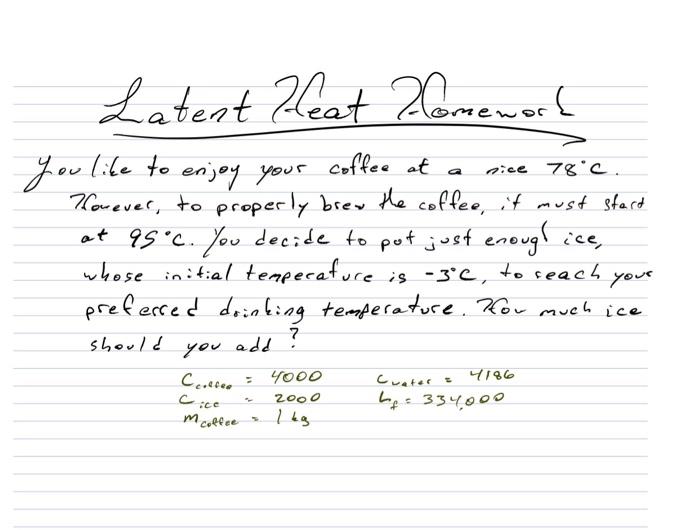 Latent Heat Homework
You like to enjoy your coffee at a nice 78°C.
However, to properly brew the coffee, it must start
at 95°C. You decide to put just enough ice,
whose initial temperature is -3°C, to reach your
preferred drinking temperature. How much ice
should you add?
C coffee = 4000 C water = 4186
C ice = 2000 L f = 334,000
m coffee = 1 kg